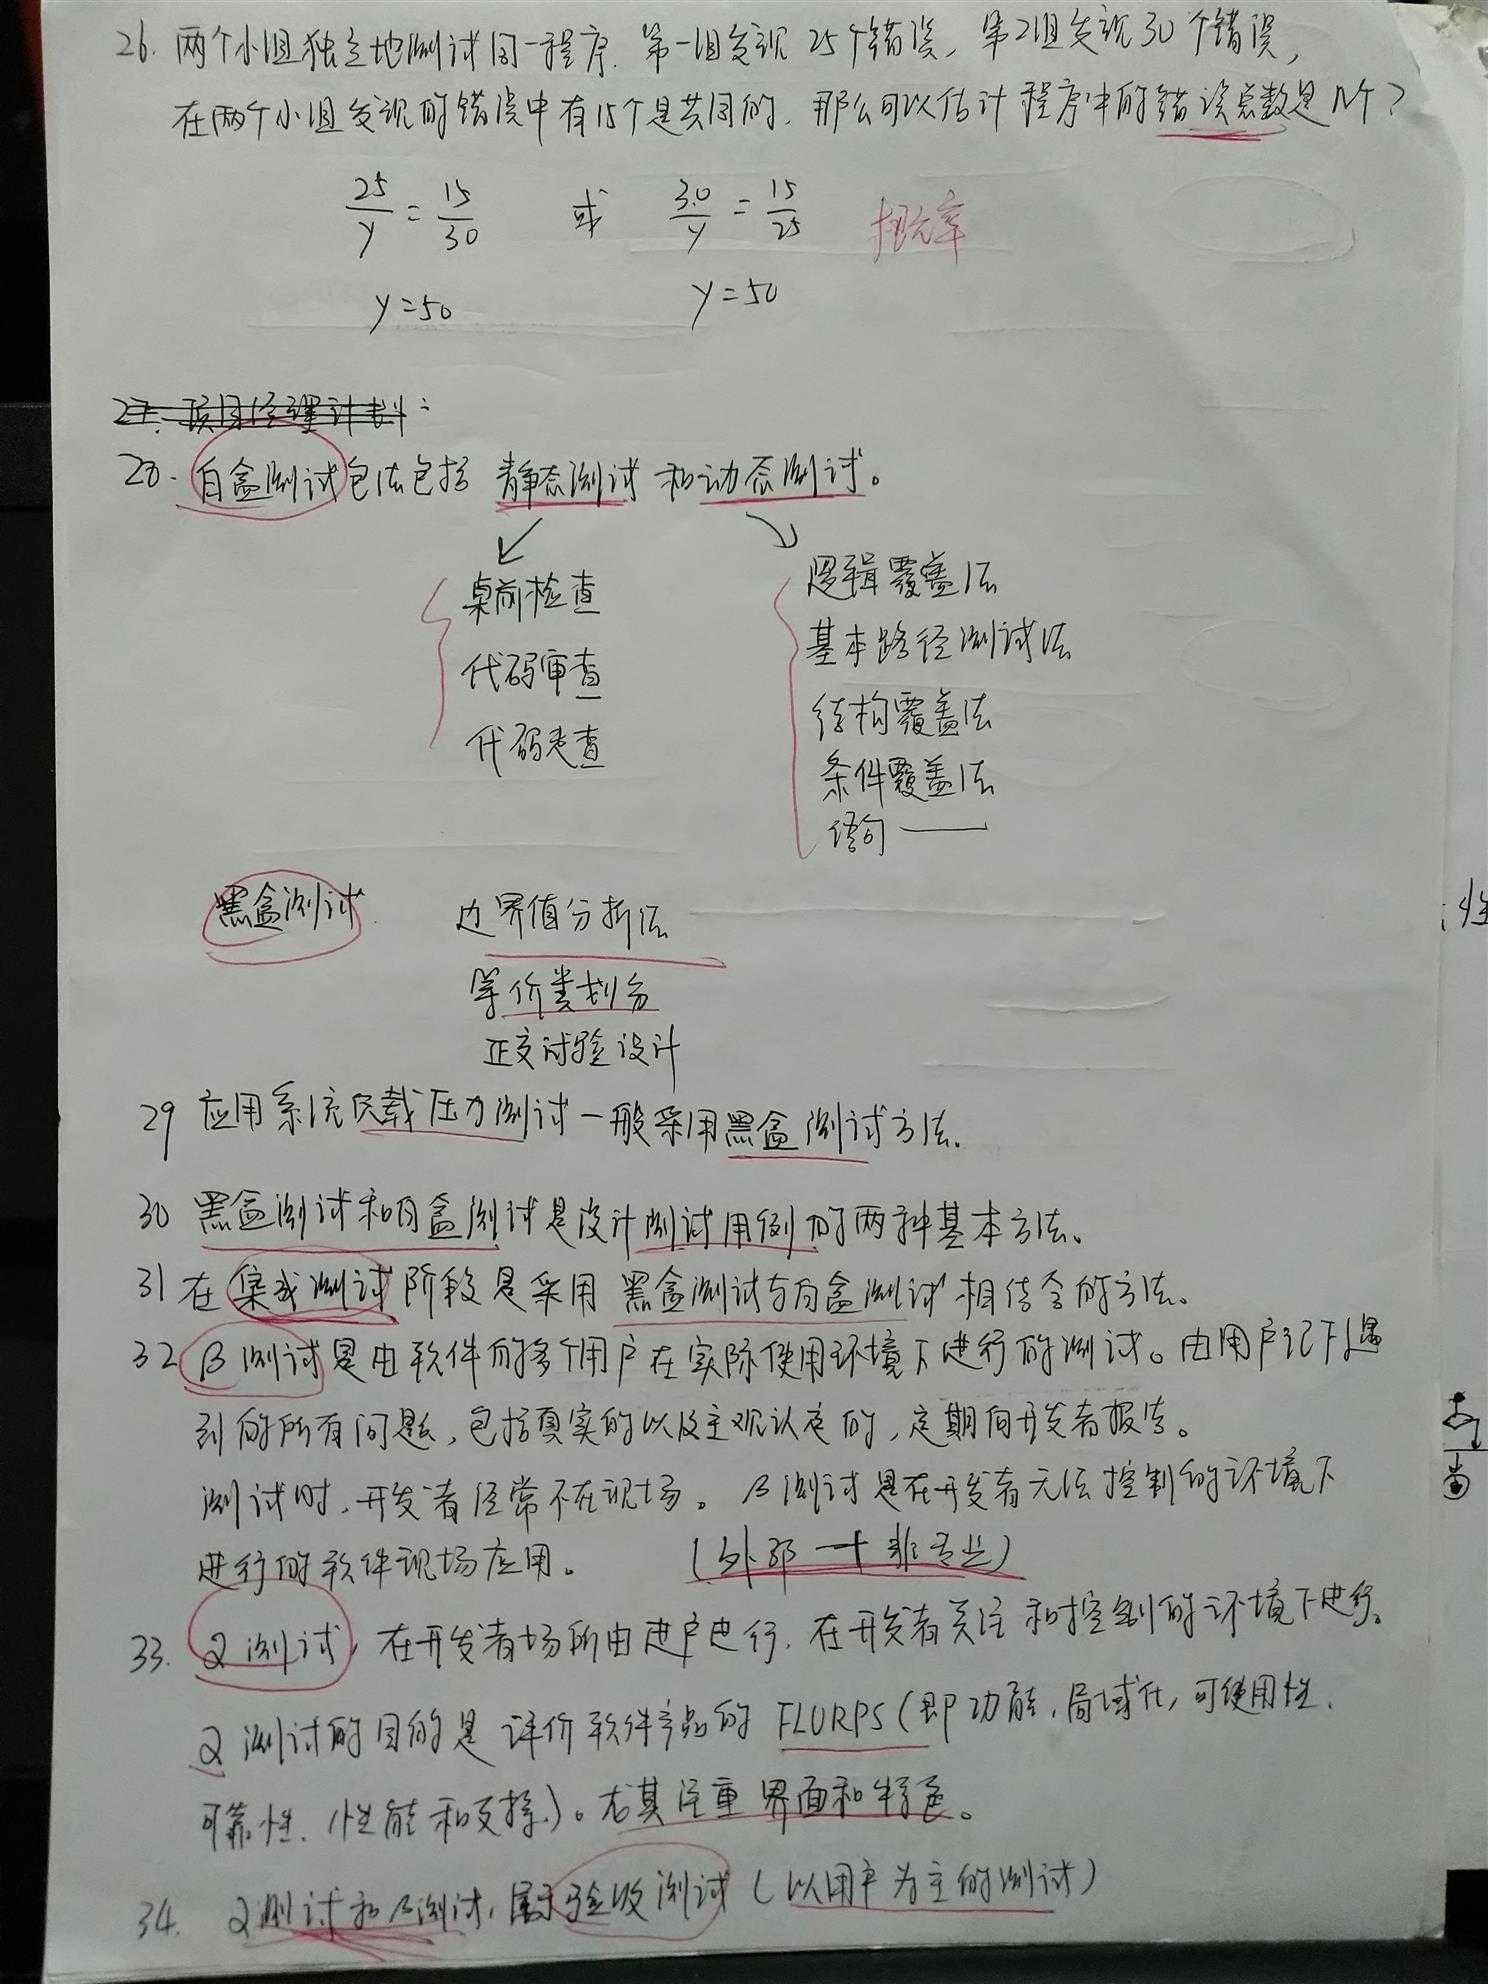 26. 两个小组独立地测试同一程序. 第一组发现 25个错误, 第2组发现30个错误,
在两个小组发现的错误中有15个是共同的. 那么可以估计 程序中的错误总数是 个?
25/y = 15/30 或 30/y = 15/25 概率
y=50 y=50
27. 项目经理计划:
28. 白盒测试包法包括 静态测试 和动态测试。
桌前检查
代码审查
代码走查
逻辑覆盖法
基本路径测试法
结构覆盖法
条件覆盖法
语句 ——
黑盒测试 边界值分析法
等价类划分
正交试验设计
29 应用系统负载压力测试一般采用黑盒测试方法.
30 黑盒测试和白盒测试是设计测试用例的两种基本方法。
31 在集成测试阶段是采用 黑盒测试与白盒测试相结合的方法。
32 β测试是由软件的多个用户在实际使用环境下进行的测试。由用户记下遇
到的所有问题, 包括真实的以及主观认定的, 定期向开发者报告。
测试时, 开发者经常不在现场。β测试是在开发者无法控制的环境下
进行的软件现场应用。 (外部一十非专业)
33. α测试, 在开发者场所由用户进行. 在开发者关注和控制的环境下进行。
α测试的目的是 评价软件产品的 FLURPS (即功能, 局域化, 可使用性.
可靠性、性能和支持.)。尤其注重 界面和特色。
34. α测试和β测试, 属于验收测试 (以用户为主的测试)
性